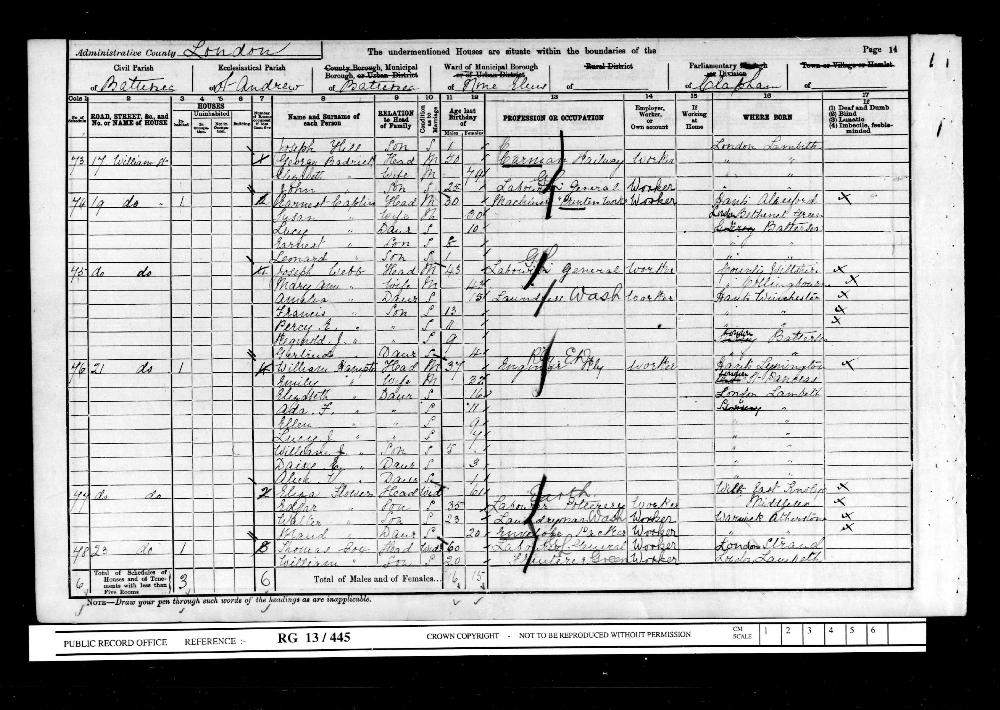 Administrative County London The undermentioned Houses are situate within the boundaries of the Page 14
Civil Parish Ecclesiastical Parish County Borough, Municipal Borough, or Urban District Ward of Municipal Borough or of Urban District Rural District Parliamentary Borough or Division Town or Village or Hamlet
of Battersea of St Andrew of Battersea of Nine Elms of of Clapham of
Cols 1 2 3 4 5 6 7 8 9 10 11 12 13 14 15 16 17
No. of Schedule ROAD, STREET, &c., and No. or NAME of HOUSE HOUSES Inhabited Uninhabited In Occupation Not in Occupation Name and Surname of each Person RELATION to Head of Family Condition as to Marriage Age last Birthday of Males Females PROFESSION OR OCCUPATION Employer, Worker, or Own account If Working at Home WHERE BORN If (1) Deaf and Dumb (2) Blind (3) Lunatic (4) Imbecile, feeble-minded
Joseph Hill Son S 1 London Lambeth
73 17 William St George Head M 50 Carman Railway Worker " "
Elizabeth " Wife M
John " Son S 25 Labourer General Worker
74 19 do 1 Earnest Head M 30 Machine Works Worker Hants Alresford
Susan " Wife M 30 London Bethnal Green
Lucy " Daur S 10 Battersea
Earnest " Son S 8 " "
Leonard " Son S 1 " "
75 do do Joseph Webb Head M 43 Labourer General Worker Wiltshire
Mary Ann " Wife M 43 " Collingbourne
Amelia " Daur S 15 Laundress Wash Worker Hants Winchester
Francis " Son S 13 " "
Percy E. " " S 11 " "
Reginald J. " " S 9 Battersea
Gertrude " Daur S 4 " "
76 21 do 1 William Head M 37 Engine Rly Worker Hants Lymington
Emily " Wife M St Pancras
Elizabeth " Daur S 16 London Lambeth
Ada F. " " S 11 "
Ellen " " S 9 " "
Lucy J. " " S 7 " "
William J. " Son S 5 " "
Daisy " Daur S 3 " "
" Daur S 1 " "
77 do do 2 Eliza Flower Head Wid 61 Wilts East Knoyle
Edgar " Son S 35 Labourer Pottery Worker "
Walter " Son S 23 Laundryman Wash Worker Warwick Atherstone
Maud " Daur S 20 Envelope Packer Worker " "
78 23 do 1 3 Thomas Cox Head Widr 60 Labourer General Worker London Strand
William " Son S 20 Green Worker London Lambeth
6 Total of Schedules of Houses and of Tenements with less than Five Rooms 3 6 Total of Males and of Females... 16 15
NOTE—Draw your pen through such words of the headings as are inapplicable.
PUBLIC RECORD OFFICE REFERENCE :- RG 13 / 445 CROWN COPYRIGHT - NOT TO BE REPRODUCED WITHOUT PERMISSION CM SCALE 1 2 3 4 5 6